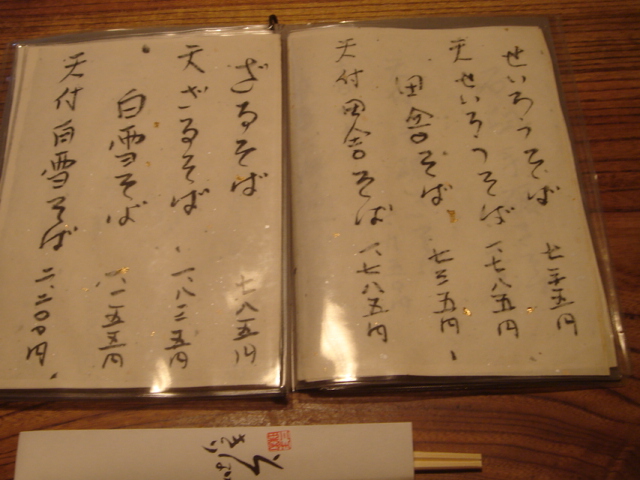 せいろうそば 七三五円
天せいろうそば 一、七八五円
田舎そば 七三五円
天付田舎そば 一、七八五円
ざるそば 七八五円
天ざるそば 一、八三五円
白雪そば 一、一五五円
天付白雪そば 二、二〇〇円